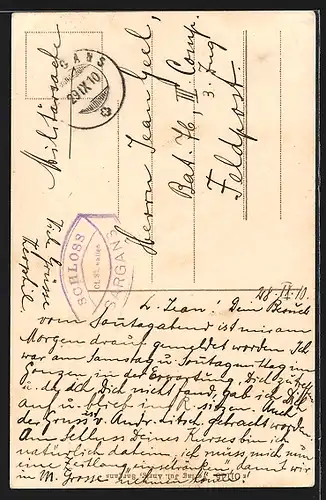 Militärsache
SARGANS
29.IX.10
Herrn Jean Geel,
Bat. 76, III Comp.
3. Zug
Feldpost.
SCHLOSS
SARGANS
28. IX. 10.
L. Jean! Dein Besuch
vom Sonntagabend ist mir am
Morgen drauf gemeldet worden. Ich
war am Samstag u. Sonntagmittag in
Gonzen, in der Erwartung, Dich zu treffen
u. da ich Dich nicht fand, gab ich Dich
auf u. blieb in R. sitzen. Auch
der Gruss v. Andr. Litsch. gebracht worden
Am Schluss Deines Kurses bin ich
natürlich daheim, ich muss mich nun
eine Zeitlang einschränken, damit wir
in M. Grosse
Viele Grüsse